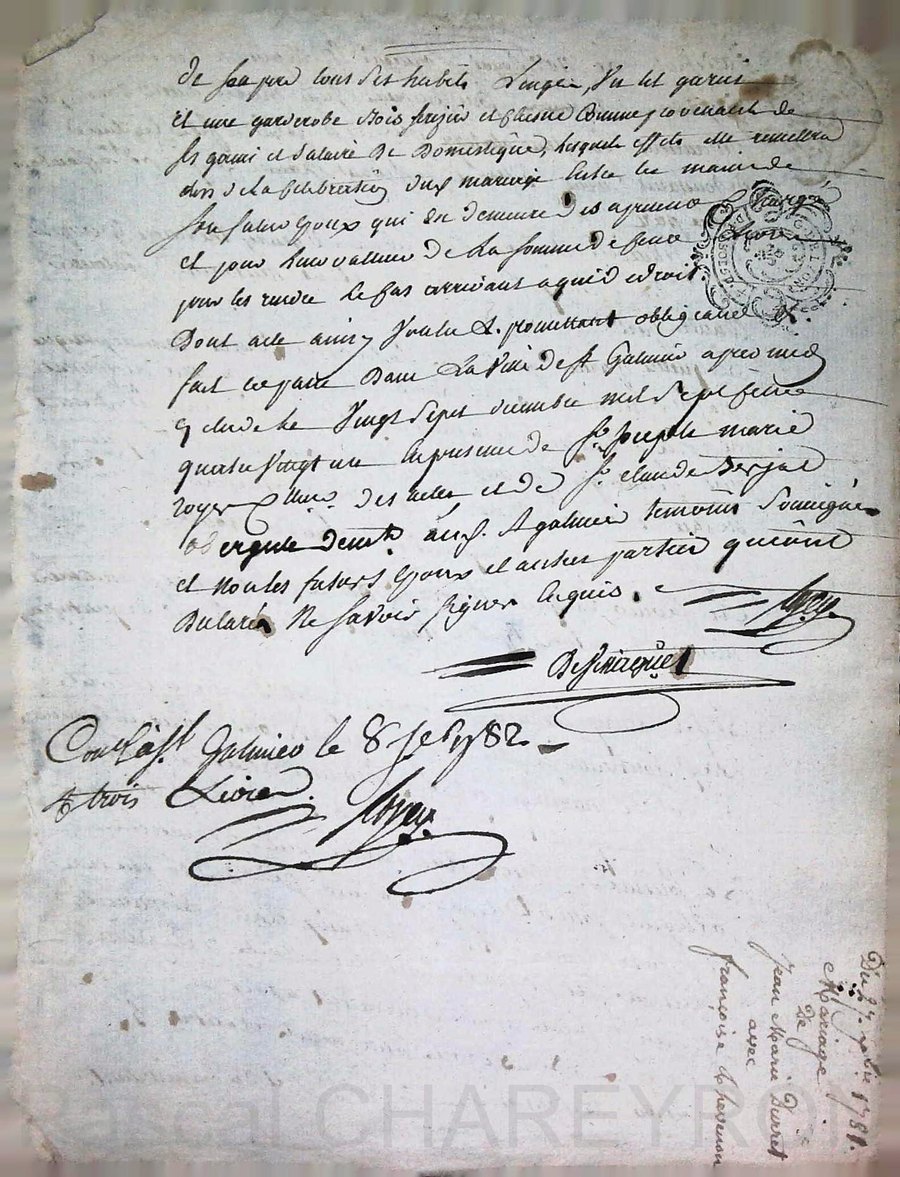 de son pere tous ses habits Linges, Un lit garni
et une garderobe Bois sapin et Chesne Comme provenant de
ses gains et salaire De Domestique, lesquels effets elle remettra
lors de La celebration dud. mariage Entre les mains de
son futur Epoux qui En demeure des apresent Chargé
et pour Leur valleur de La somme de Livres
pour les rendre le Cas arrivant a qui de droit.
Dont acte ainsy Voulu & promettant obligeant &.
fait et passé Dans La Ville de St. Galmier apres midy
Vingt Sept decembre mil Sept Cent
quatre Vingt un En presence de Sr. Joseph marie
royer des actes et de Sr. claude
aubergiste demt. aud. St galmier temoins Soussignés
et non les futurs Epoux et autres parties qui ont
Declaré Ne Savoir signer Enquis.
Royer
Conté à St. Galmier le 8 1782
trois Livres
Royer
Du 27. xbre 1781.
Mariage
De
Jean Marie Durret
avec
françoise Thevenon
Pascal CHAREYRON